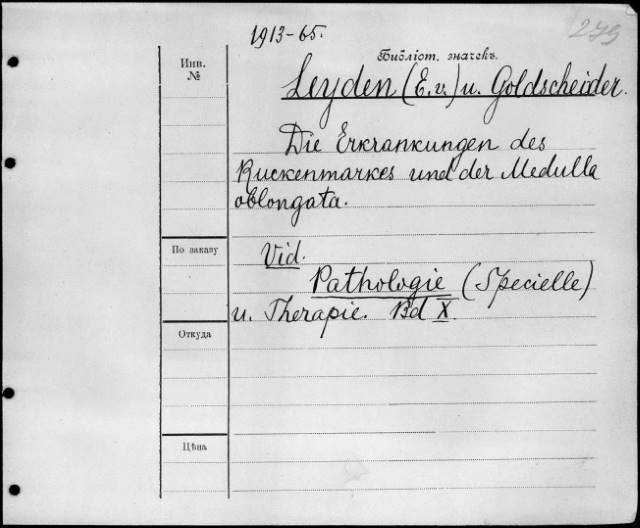 1913-65.
279
Инв.
№
Библіот. значекъ.
Leyden (E. v.) u. Goldscheider.
Die Erkrankungen des
Ruckenmarkes und der Medulla
oblongata.
По заказу
Vid.
Pathologie (Specielle)
u. Therapie. Bd X.
Откуда
Цѣна